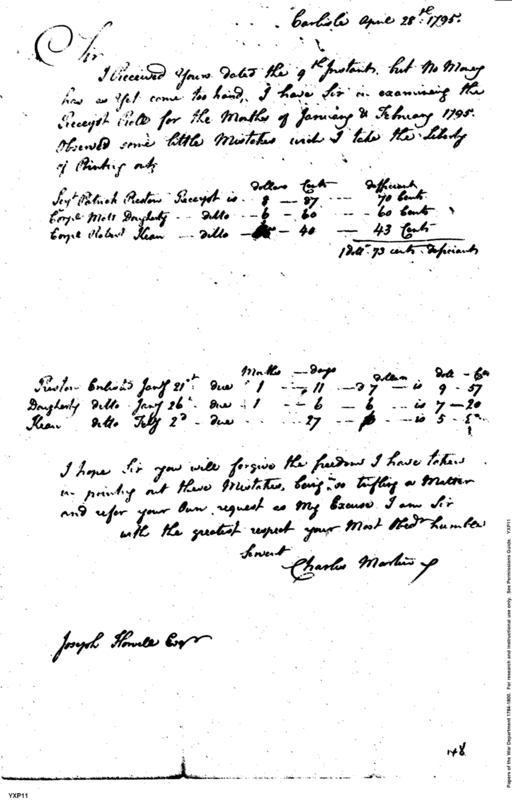 Carlisle April 28th. 1795.
Sir
I Received Yours dated the 9th Instant, but No Money
has as Yet come too hand, I have Sir in examining the
Receipt Roll for the Months of January & February 1795.
Observed some little Mistakes wich I take the Liberty
of Pointing out,
dollars Cents difficient
Serjt Patrick Preston Receipt is - 8 - 87 - 70 Cents
Corpl Mott Dougherty - - ditto - 6 - 60 - 60 Cents
Corpl Robert Kean - - ditto - - 40 - 43 Cents
1 dolr. 73 cents. deficiants
Months - days dollars doll - Cts
Preston Enlisted Jany 21st due 1 - 11 - 7 - is 9 - 57
Dougherty ditto Jany 26th due 1 - 6 - 6 - is 7 - 20
Kean - ditto Feby 2d - due 27 - is 5 -
I hope Sir you will forgive the freedom I have taken
in pointing out these Mistakes, being so trifling a Matter
and refer your Own request as My Excuse I am Sir
with the greatest respect your Most Obedt humble
Servent
Charles Martin
Joseph Howell Esqr
148
YXP11
Papers of the War Department 1784-1800. For research and instructional use only. See Permissions Guide. YXP11